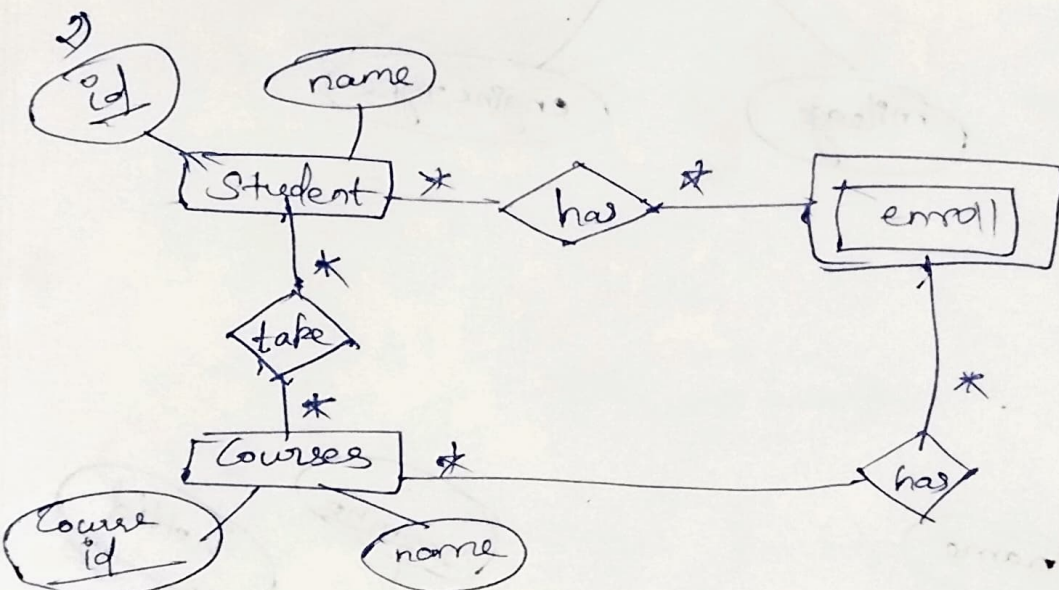 2)
id
name
Student * has * enroll
*
take
*
*
Courses * has
Course
id
name